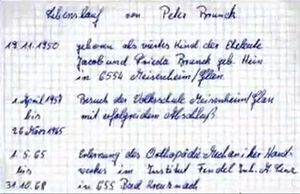 Lebenslauf von Peter Brunck
19.11.1950 geboren als viertes Kind der Eheleute
Jacob und Frieda Brunck geb. Hein
in 6554 Meisenheim/Glan
1. April 1957 Besuch der Volksschule Meisenheim/Glan
bis mit erfolgreichem Abschluß
26 Nov 1965
1. 5. 65 Erlernung des Orthopädie Mechaniker Hand-
bis werkes im Institut Fendel Inh. M.
31.10.68 in 655 Bad Kreuznach